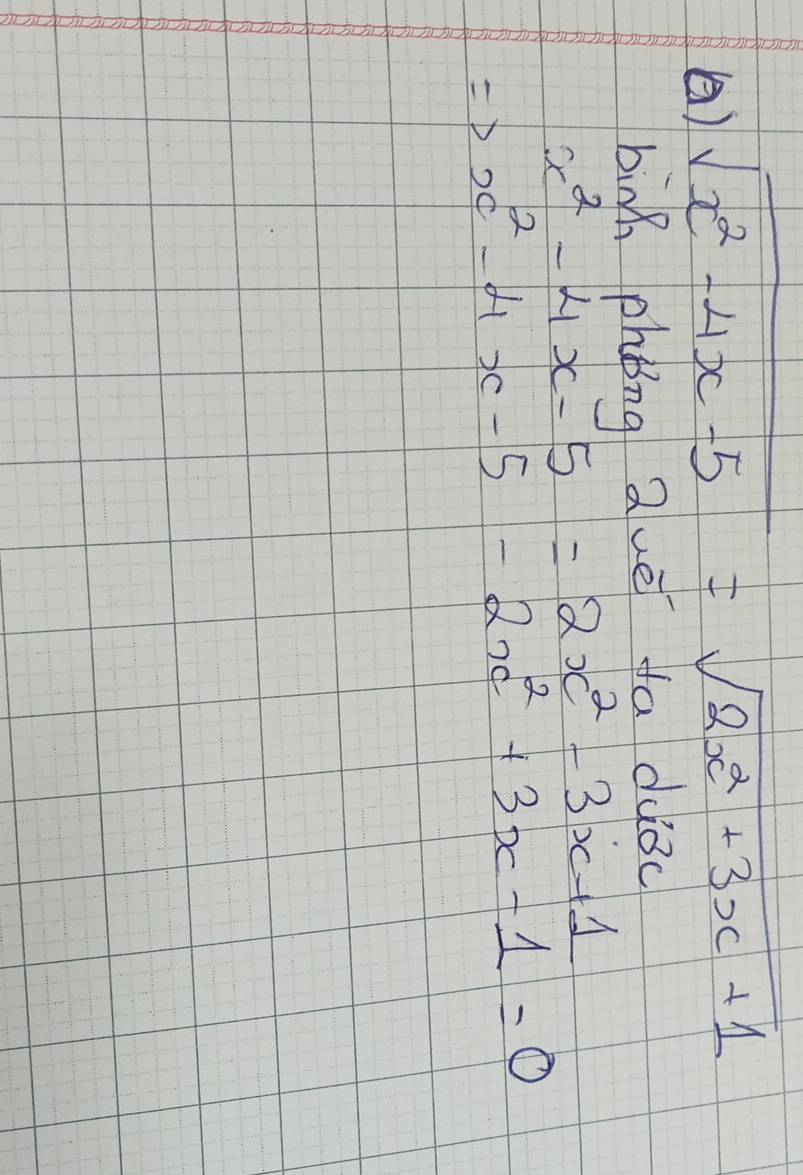 a) √x² - 4x - 5 = √2x² + 3x + 1
bình phương 2 vế ta được
x² - 4x - 5 = 2x² - 3x + 1
=> x² - 4x - 5 - 2x² + 3x - 1 = 0